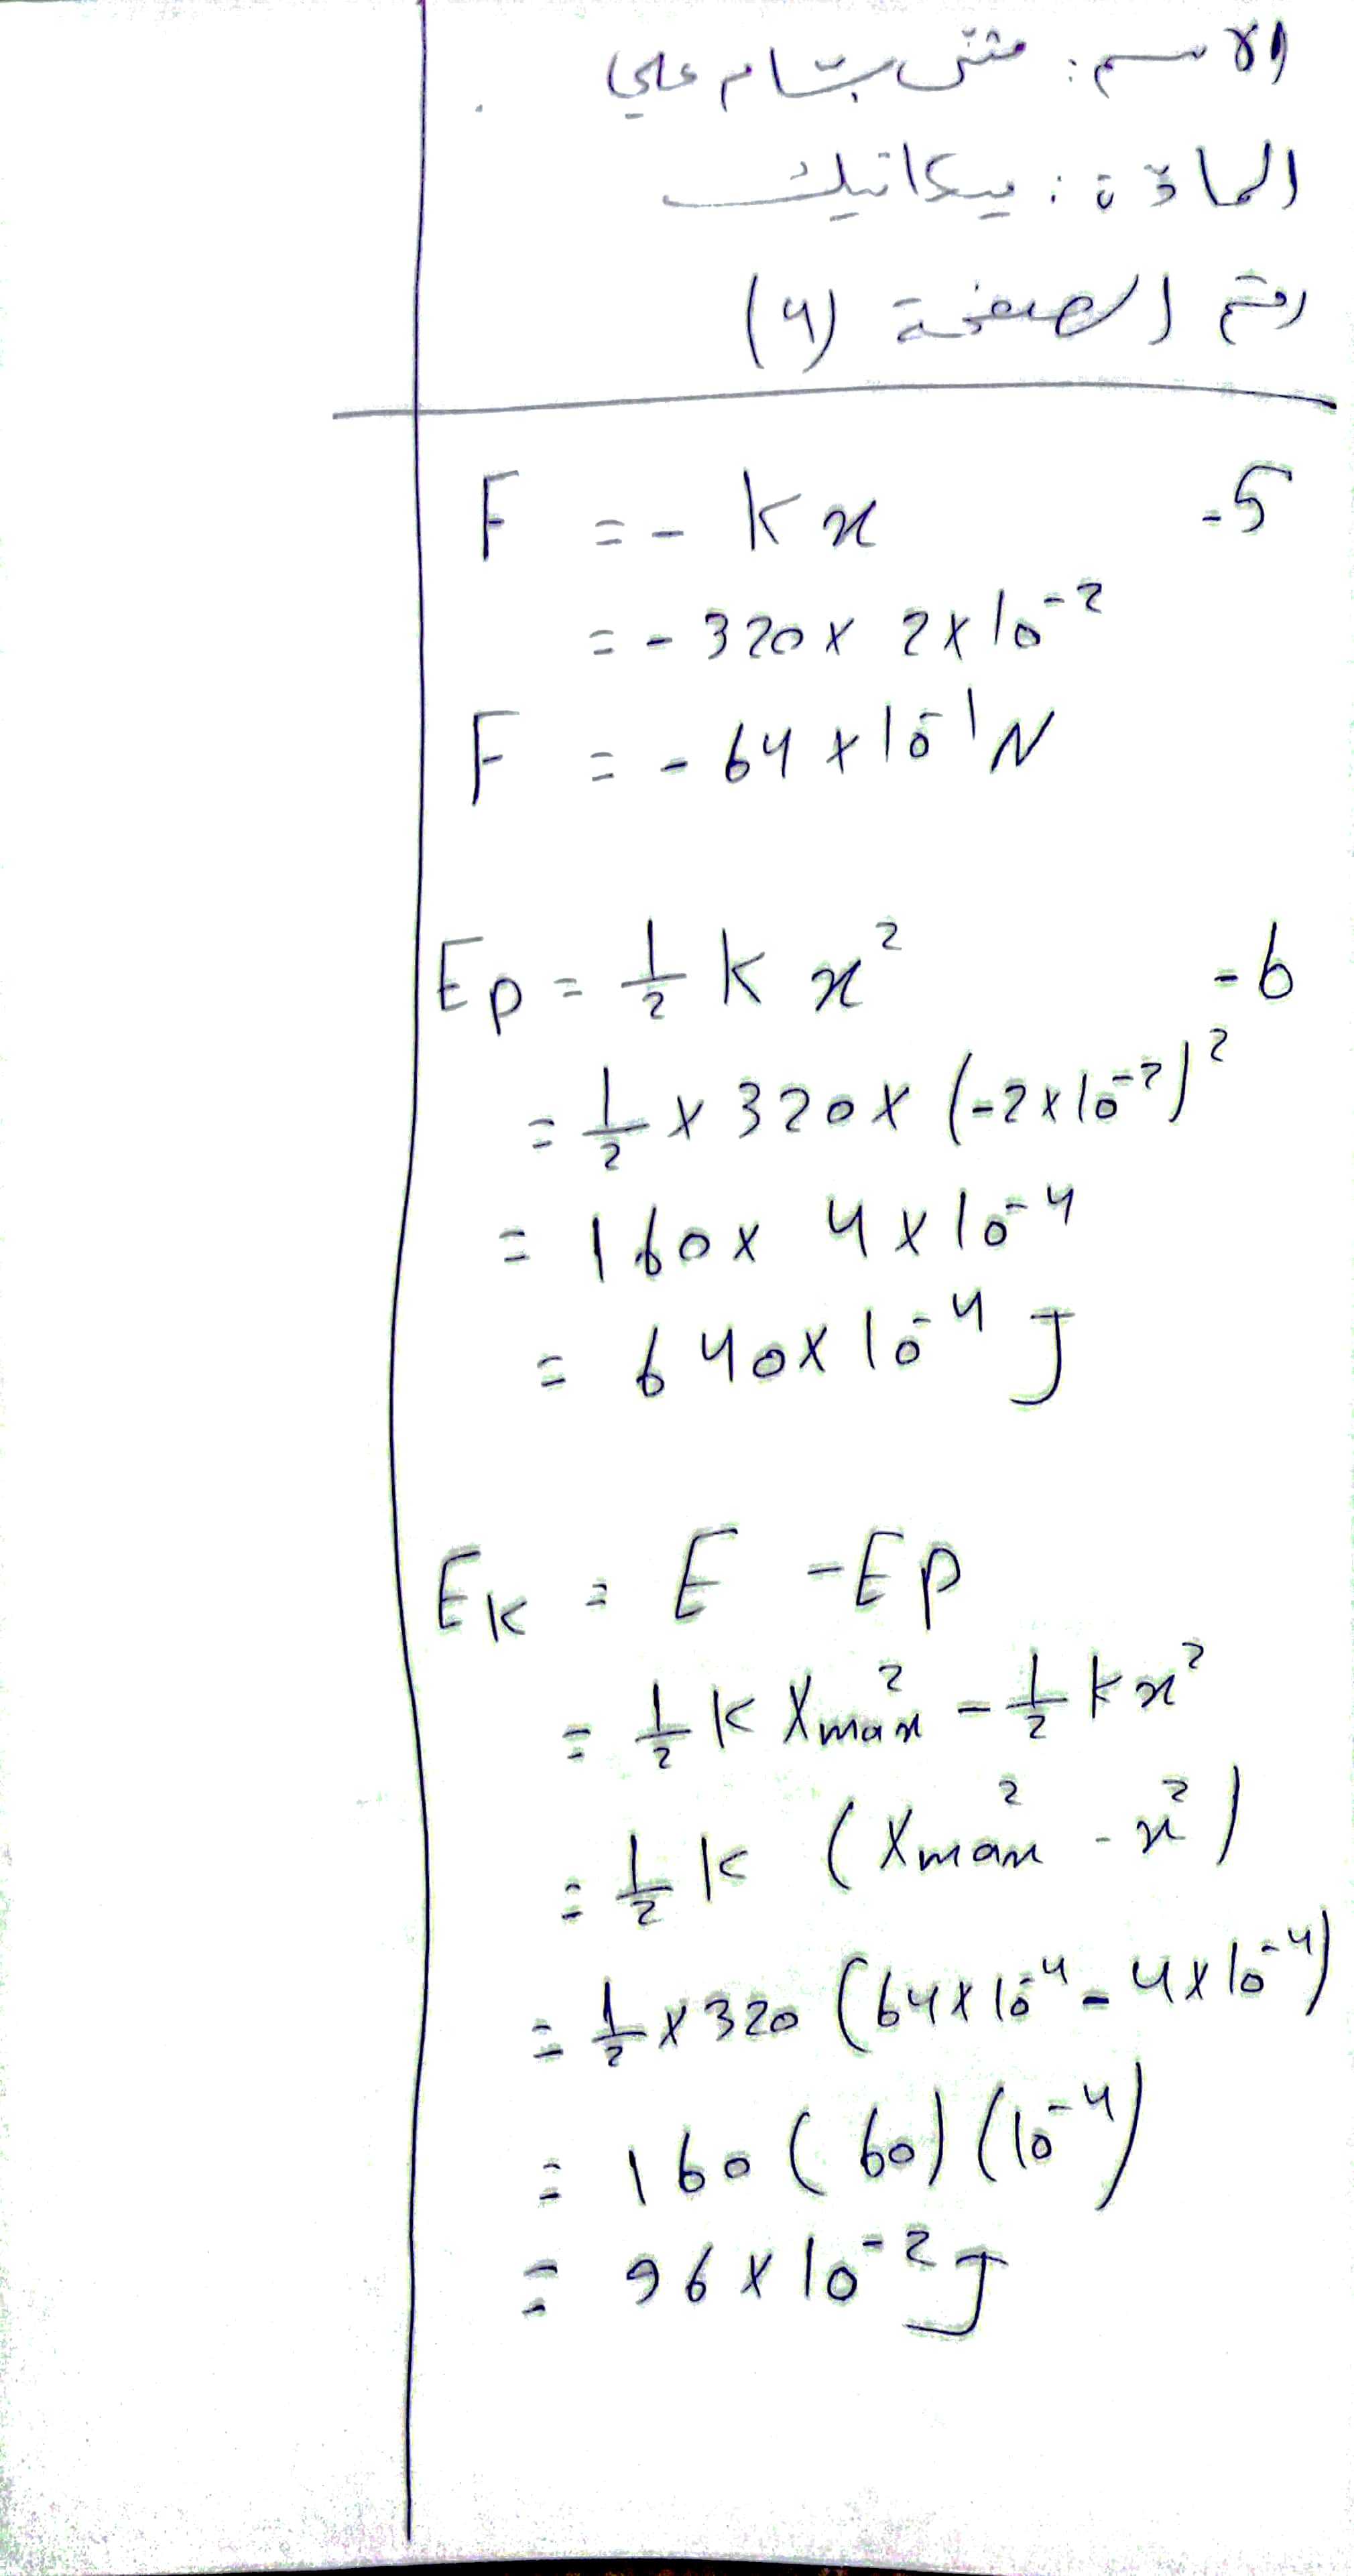 الاسم: مثنى بسّام علي
المادّة: ميكانيك
رقم الصفحة (4)
5- F = - k x
= - 320 x 2 x 10^-2
F = - 64 x 10^-1 N
6- Ep = 1/2 k x^2
= 1/2 x 320 x (-2 x 10^-2)^2
= 160 x 4 x 10^-4
= 640 x 10^-4 J
Ek = E - Ep
= 1/2 k Xmax^2 - 1/2 k x^2
= 1/2 k (Xmax^2 - x^2)
= 1/2 x 320 (64 x 10^-4 - 4 x 10^-4)
= 160 (60) (10^-4)
= 96 x 10^-2 J